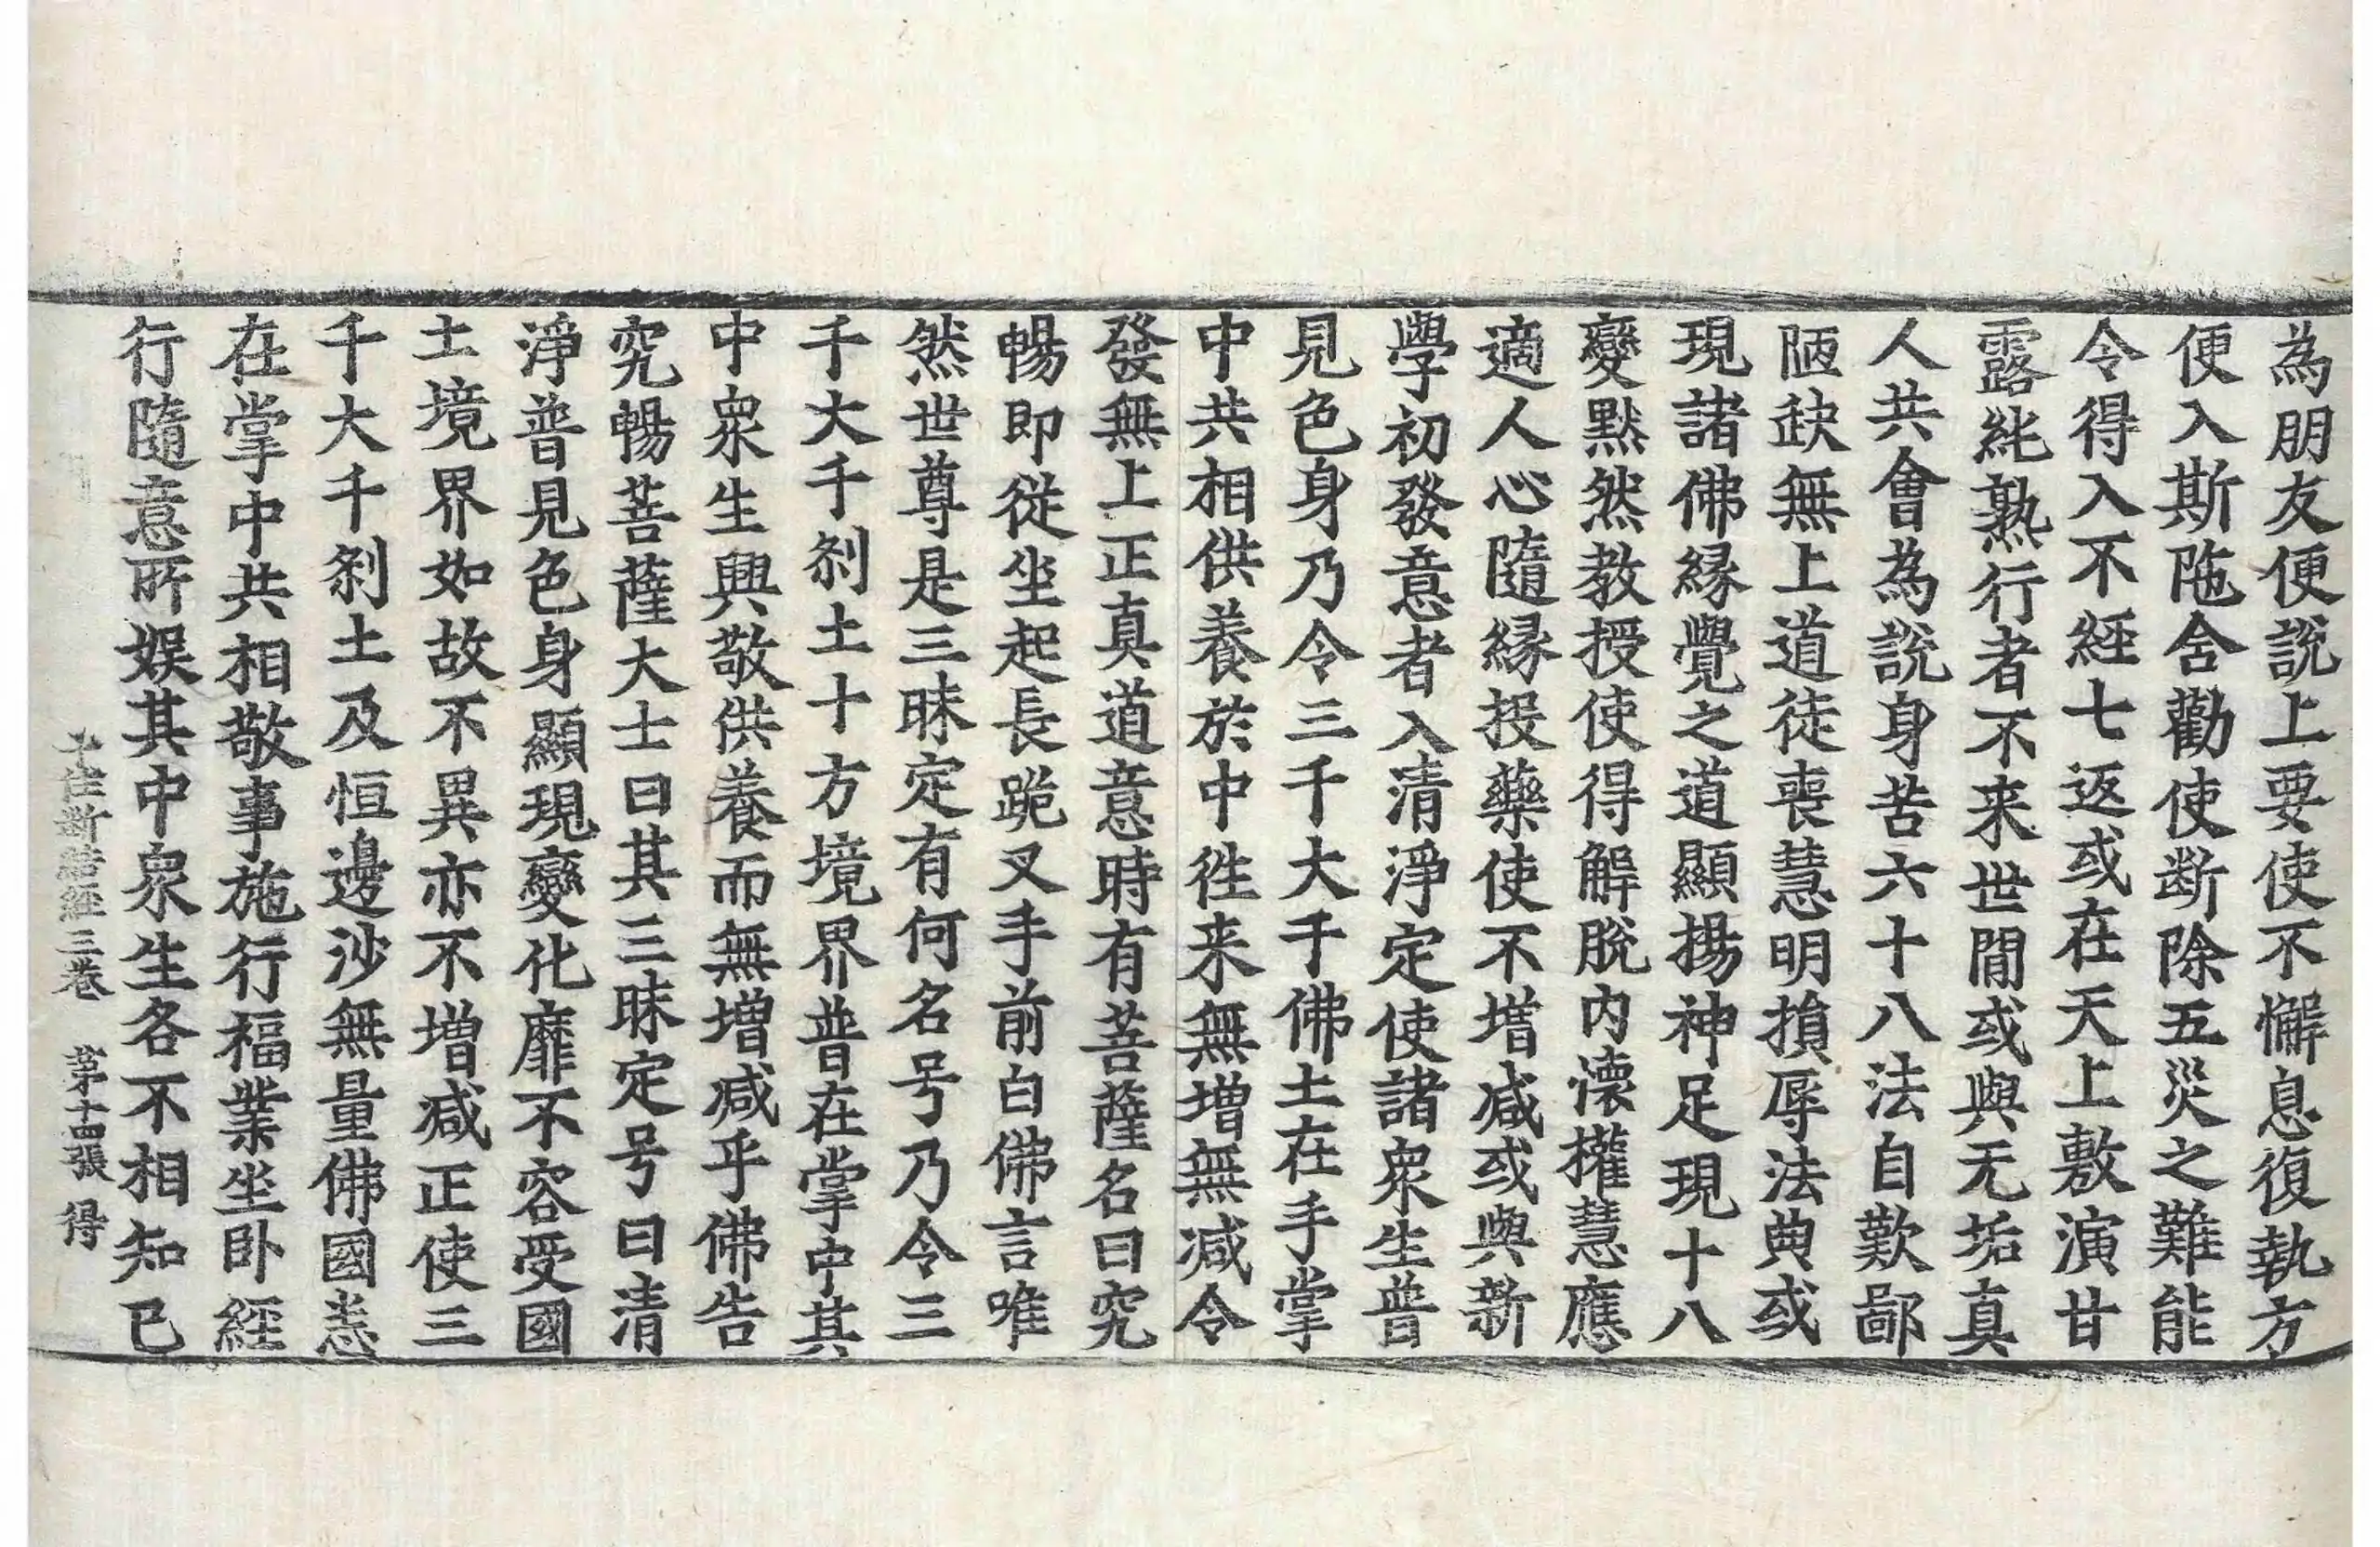 為朋友便說上要使不懈息復執方
便入斯陁舍勸使断除五災之難能
令得入不經七返或在天上敷演甘
露純熟行者不来世間或與无垢真
人共會為說身苦六十八法自歎鄙
陋䟽無上道徒喪慧明損辱法典或
現諸佛縁覺之道顯揚神足現十八
變黙然教授使得解脫内懷權慧應
適人心隨縁投藥使不増減或與新
學初發意者入清淨定使諸衆生普
見色身乃令三千大千佛土在手掌
中共相供養於中徃来無増無減令
發無上正真道意時有菩薩名曰究
暢即從坐起長跪叉手前白佛言唯
然世尊是三昧定有何名号乃令三
千大千刹土十方境界普在掌中其
中衆生興敬供養而無増減乎佛告
究暢菩薩大士曰其三昧定号曰清
淨普見色身顯現變化靡不容受國
土境界如故不異亦不増減正使三
千大千刹土及恒邊沙無量佛國悉
在掌中共相敬事施行福業坐卧經
行隨意所娯其中衆生各不相知已
十住断結經三卷 第十四張 得